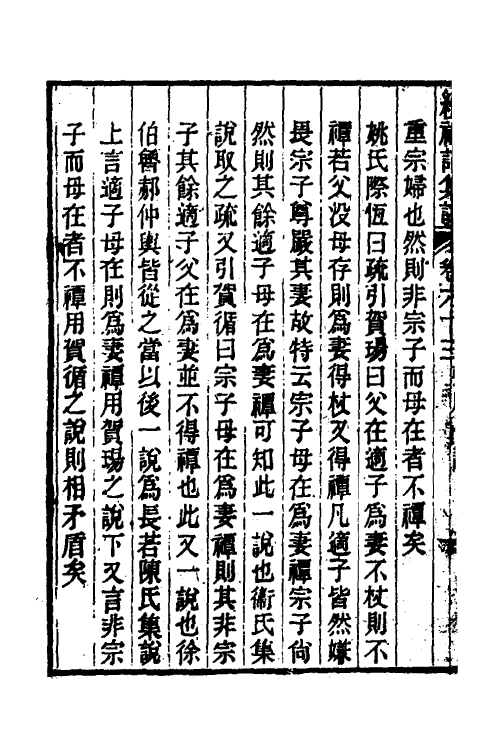 重宗婦也然則非宗子而母在者不禫矣
姚氏際恆曰疏引賀瑒曰父在適子爲妻不杖則不
禫若父没母存則爲妻得杖又得禫凡適子皆然嫌
畏宗子尊嚴其妻故特云宗子母在爲妻禫宗子尙
然則其餘適子母在爲妻禫可知此一說也衞氏集
說取之疏又引賀循曰宗子母在爲妻禫則其非宗
子其餘適子父在爲妻並不得禫也此又一說也徐
伯魯郝仲輿皆從之當以後一說爲長若陳氏集說
上言適子母在則爲妻禫用賀瑒之說下又言非宗
子而母在者不禫用賀循之說則相矛盾矣